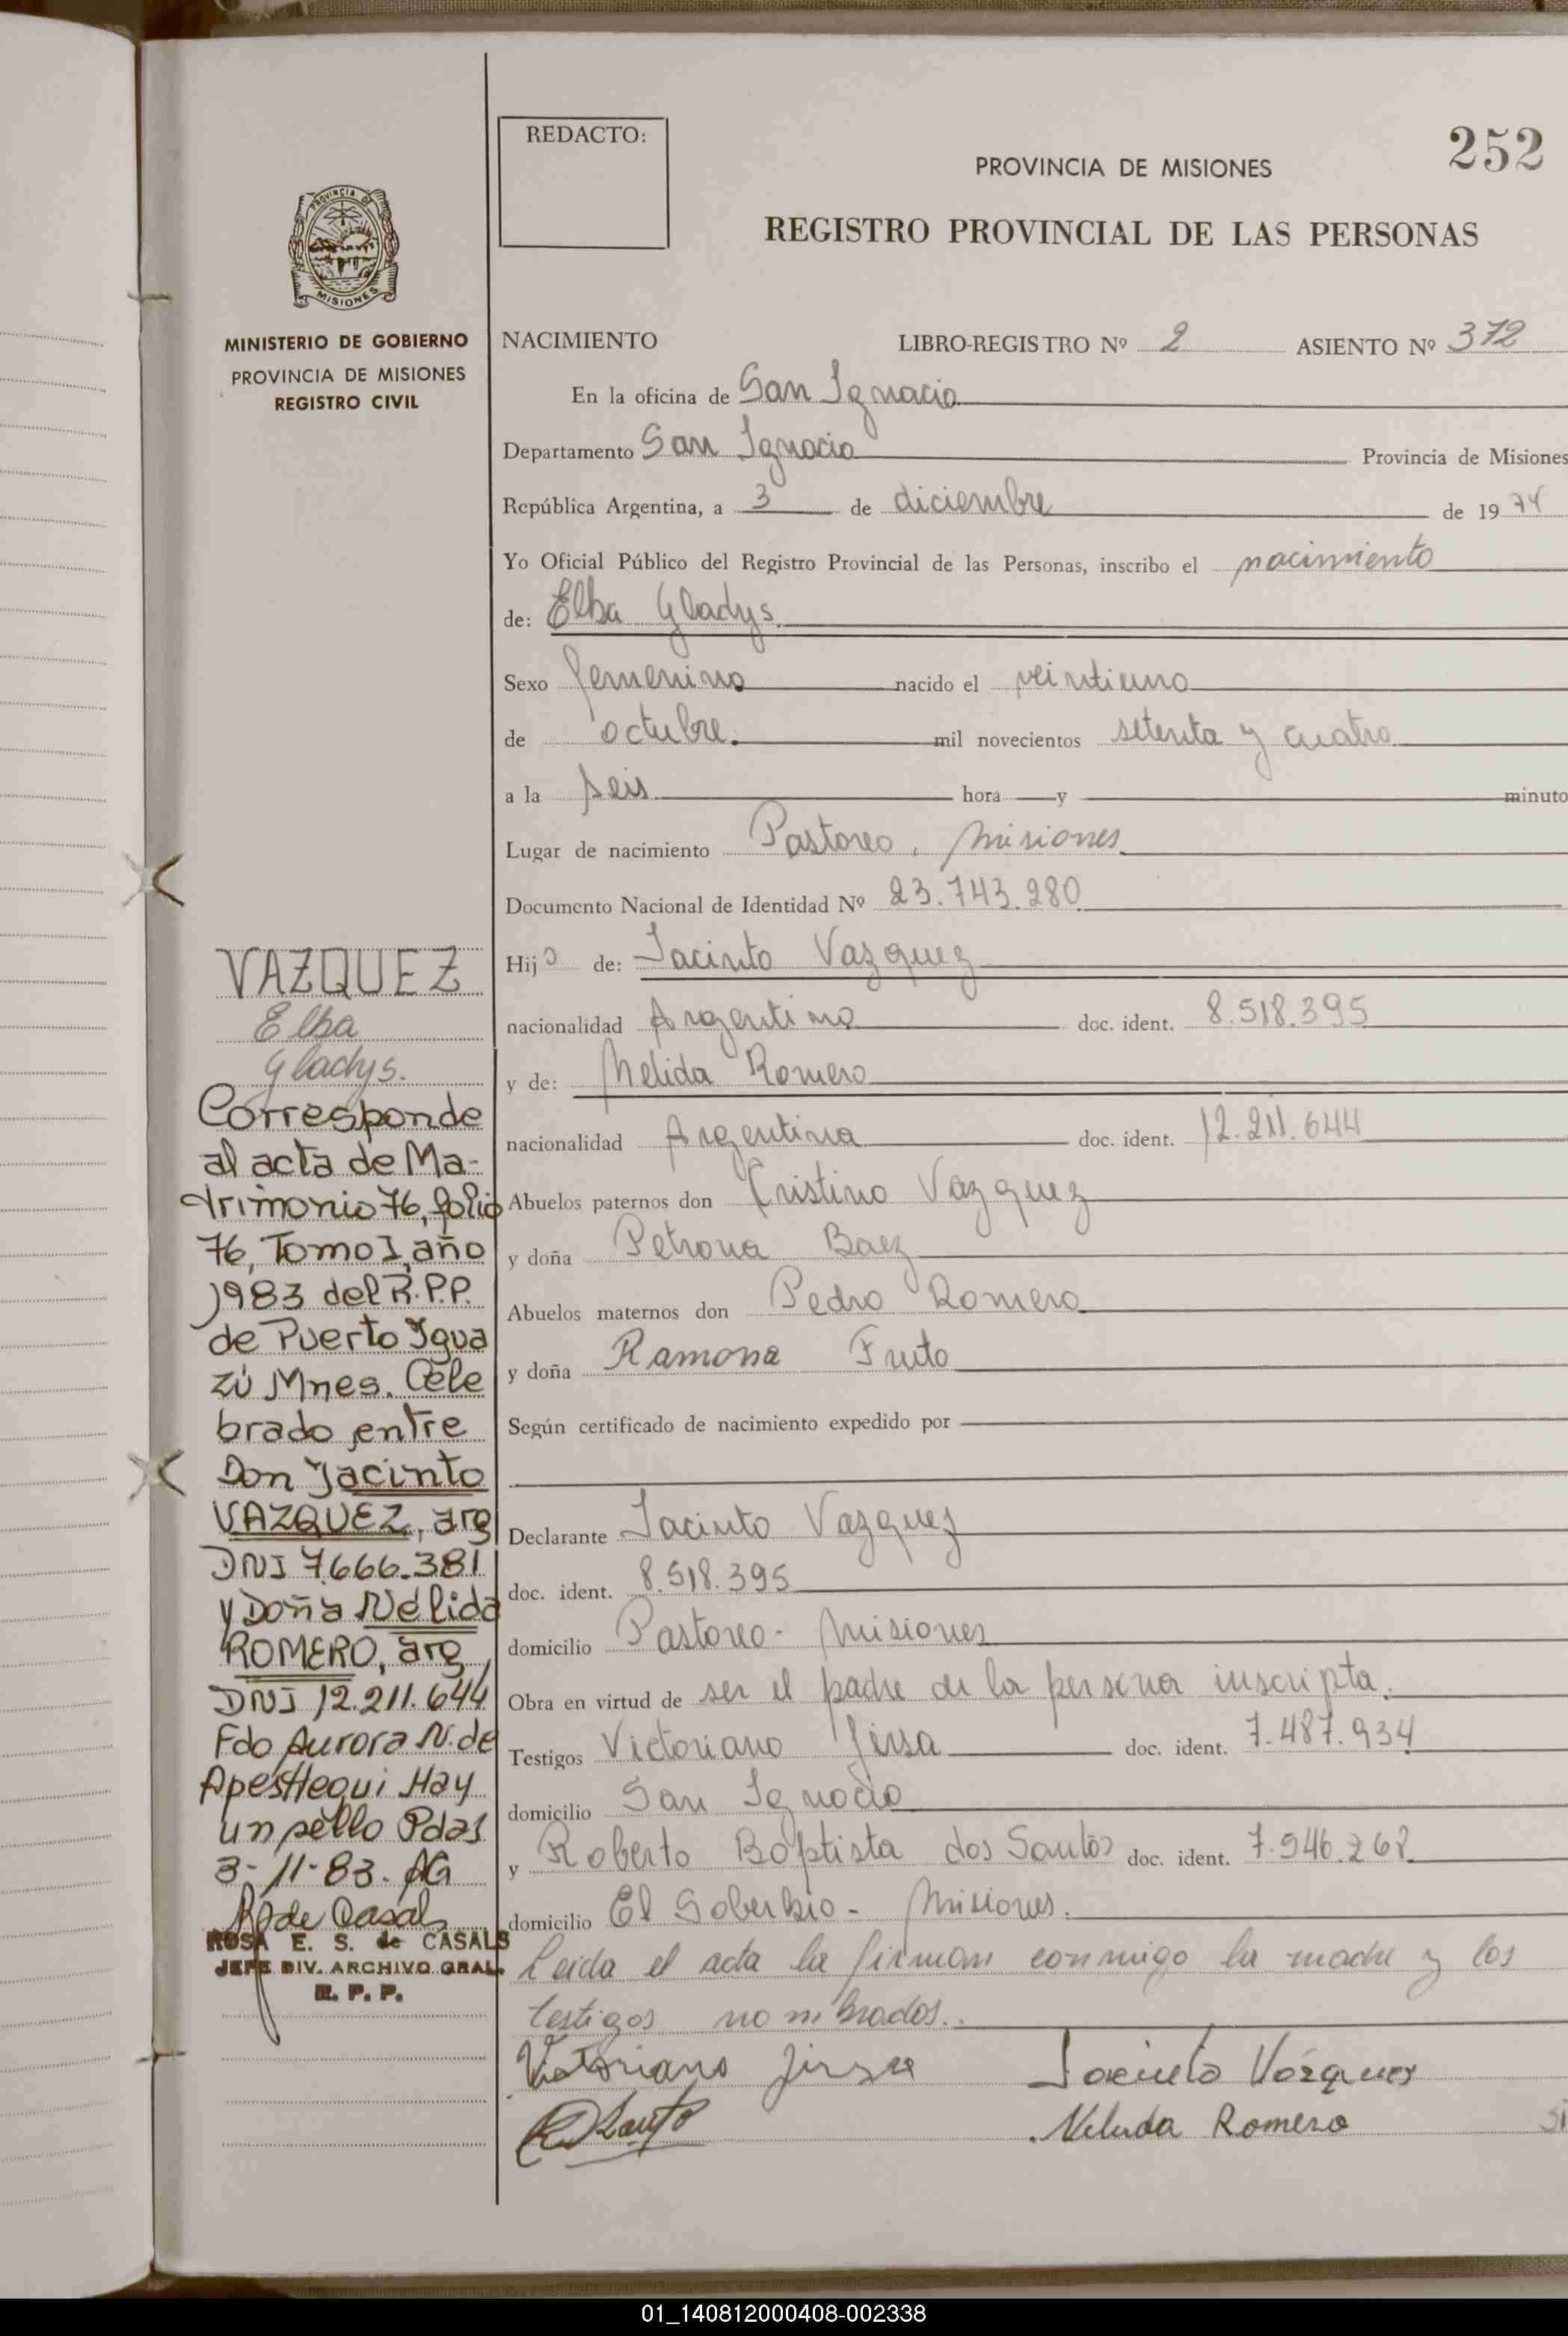 REDACTO:
252
PROVINCIA DE MISIONES
REGISTRO PROVINCIAL DE LAS PERSONAS
PROVINCIA DE
MISIONES
MINISTERIO DE GOBIERNO
PROVINCIA DE MISIONES
REGISTRO CIVIL
NACIMIENTO LIBRO-REGISTRO Nº 2 ASIENTO Nº 372
En la oficina de San Ignacio
Departamento San Ignacio Provincia de Misiones
República Argentina, a 3 de diciembre de 1974
Yo Oficial Público del Registro Provincial de las Personas, inscribo el nacimiento
de: Elba Gladys.
Sexo femenino nacido el veintiuno
de octubre. mil novecientos setenta y cuatro
a la seis hora y minuto
Lugar de nacimiento Pastoreo, Misiones
Documento Nacional de Identidad Nº 23.743.280
Hijo de: Jacinto Vazquez
nacionalidad Argentino doc. ident. 8.518.395
y de: Nelida Romero
nacionalidad Argentina doc. ident. 12.211.644
Abuelos paternos don Cristino Vazquez
y doña Petrona Baez
Abuelos maternos don Pedro Romero
y doña Ramona Fruto
Según certificado de nacimiento expedido por
Declarante Jacinto Vazquez
doc. ident. 8.518.395
domicilio Pastoreo - Misiones
Obra en virtud de ser el padre de la persona inscripta.
Testigos Victoriano Jirsa doc. ident. 7.487.934
domicilio San Ignacio
y Roberto Baptista dos Santos doc. ident. 7.546.268
domicilio El Soberbio - Misiones.
Leida el acta la firman conmigo la madre y los
testigos nombrados..
Victoriano Jirsa Jacinto Vázquez
Neluda Romero
VAZQUEZ
Elba
Gladys.
Corresponde
al acta de Ma-
trimonio 76, folio
76, Tomo I, año
1983 del R.P.P.
de Puerto Igua
zú Mnes. Cele
brado entre
Don Jacinto
VAZQUEZ, arg
DNI 7.666.381
y Doña Nélida
ROMERO, arg,
DNI 12.211.644
Fdo Aurora N. de
Apesttegui Hay
un sello Pdas
3-11-83. AG
R de Casals
ROSA E. S. de CASALS
JEFE DIV. ARCHIVO GRAL.
R. P. P.
01_140812000408-002338